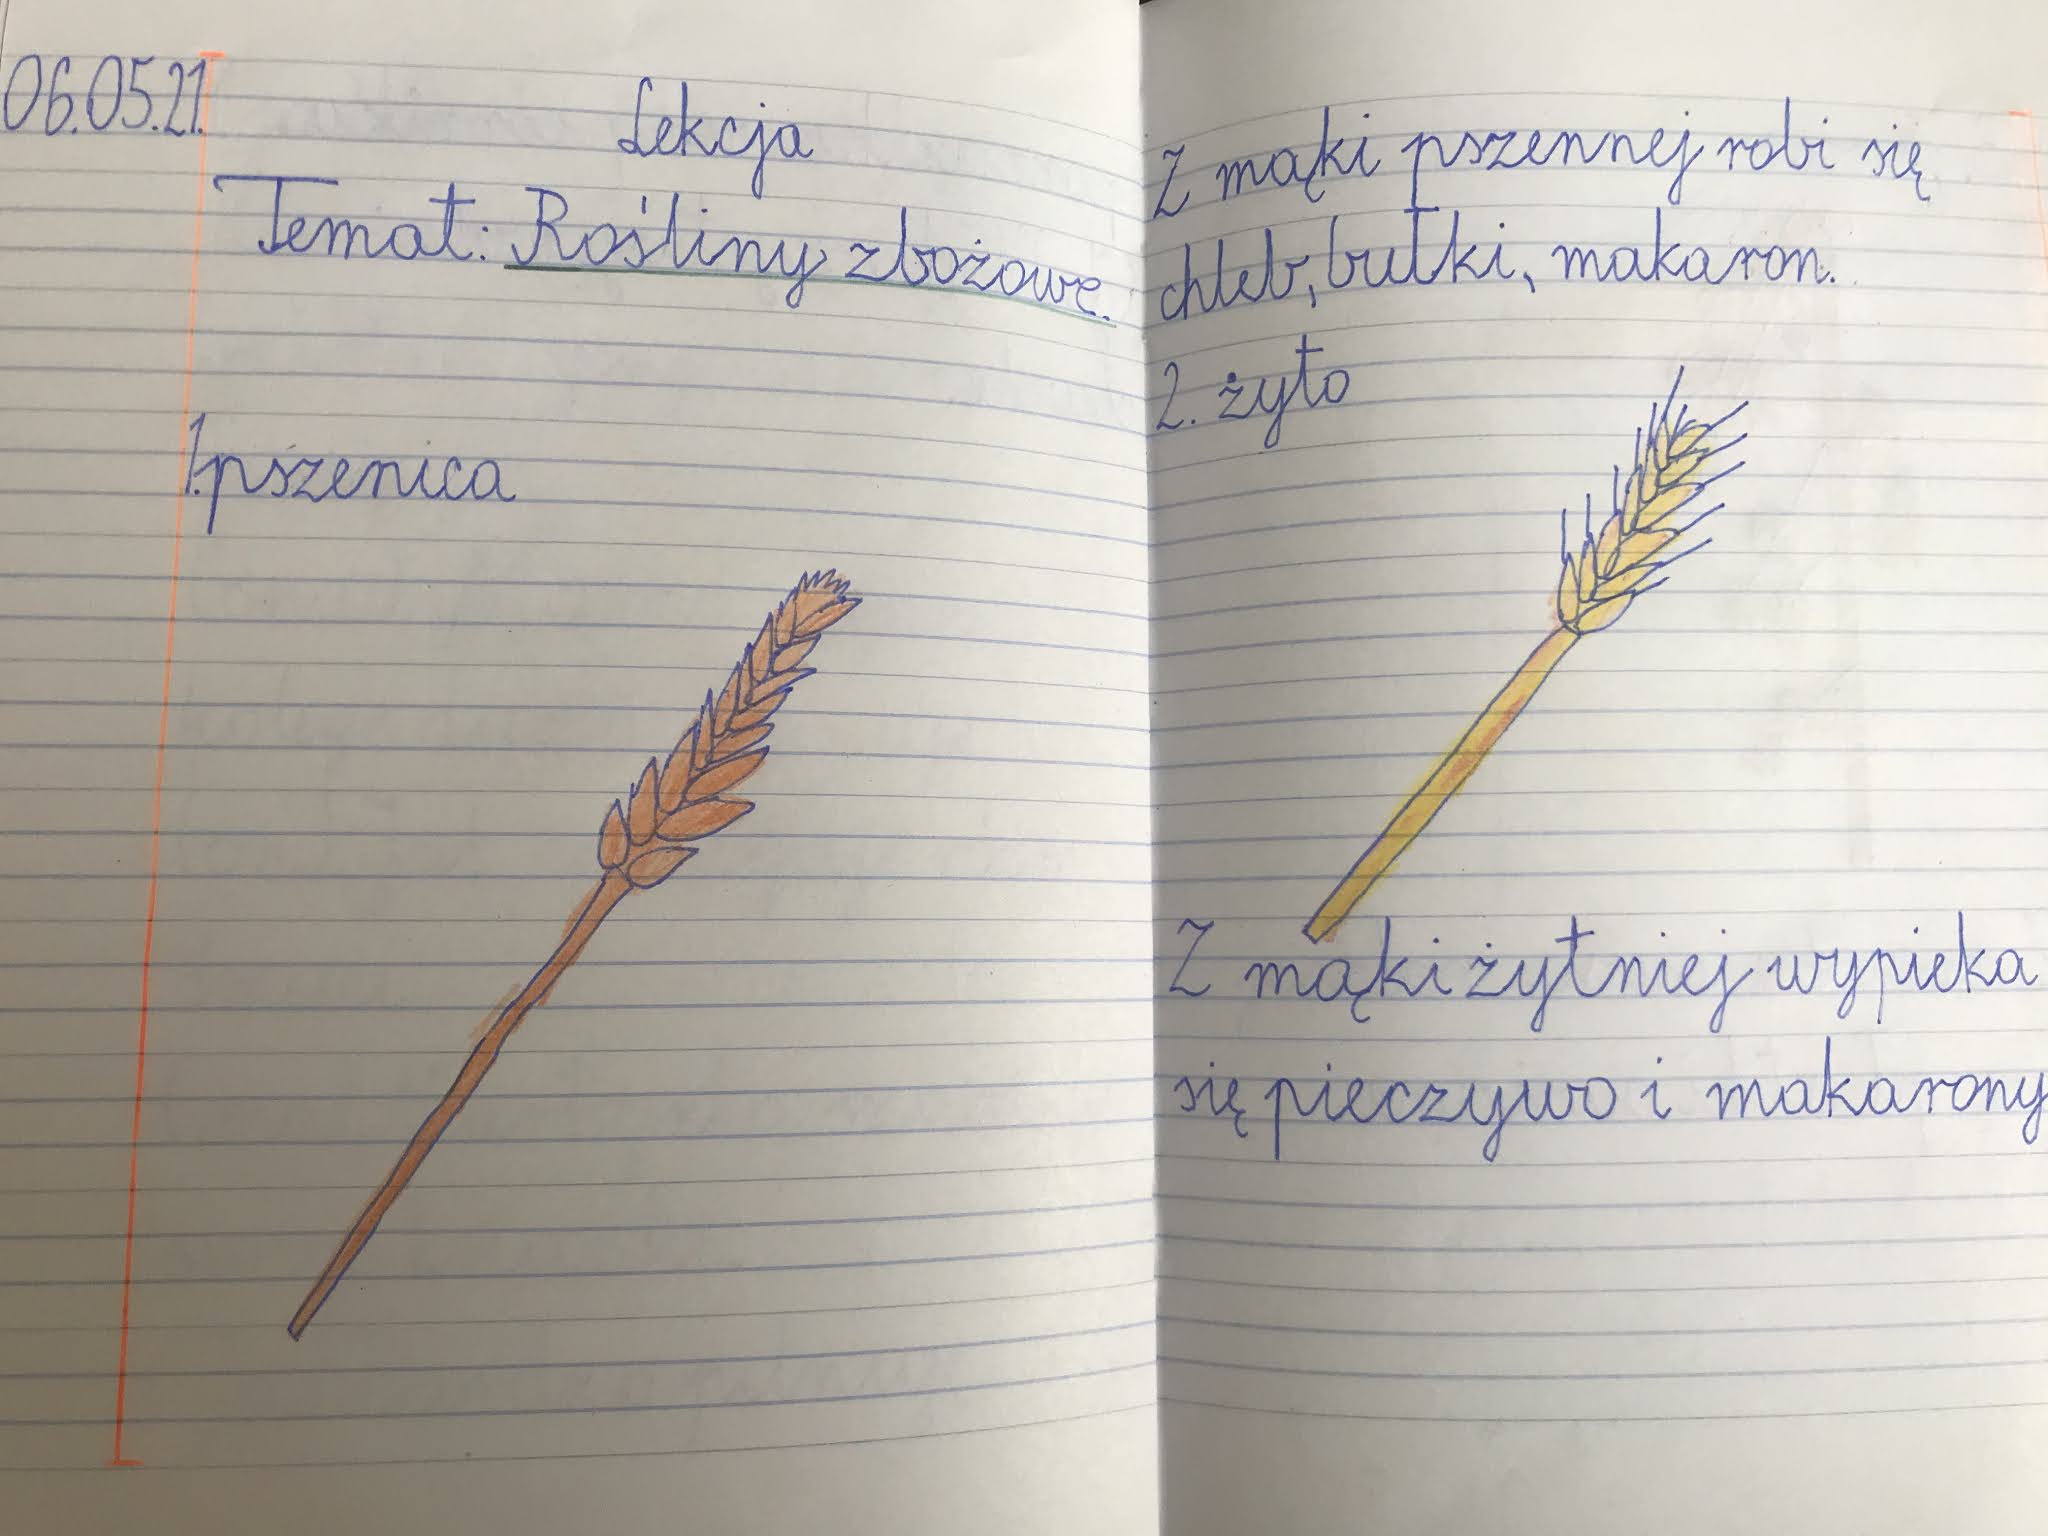 06.05.21.
Lekcja
Temat: Rośliny zbożowe.
1.pszenica
Z mąki pszennej robi się
chleb, bułki, makaron.
2. żyto
Z mąki żytniej wypieka
się pieczywo i makarony